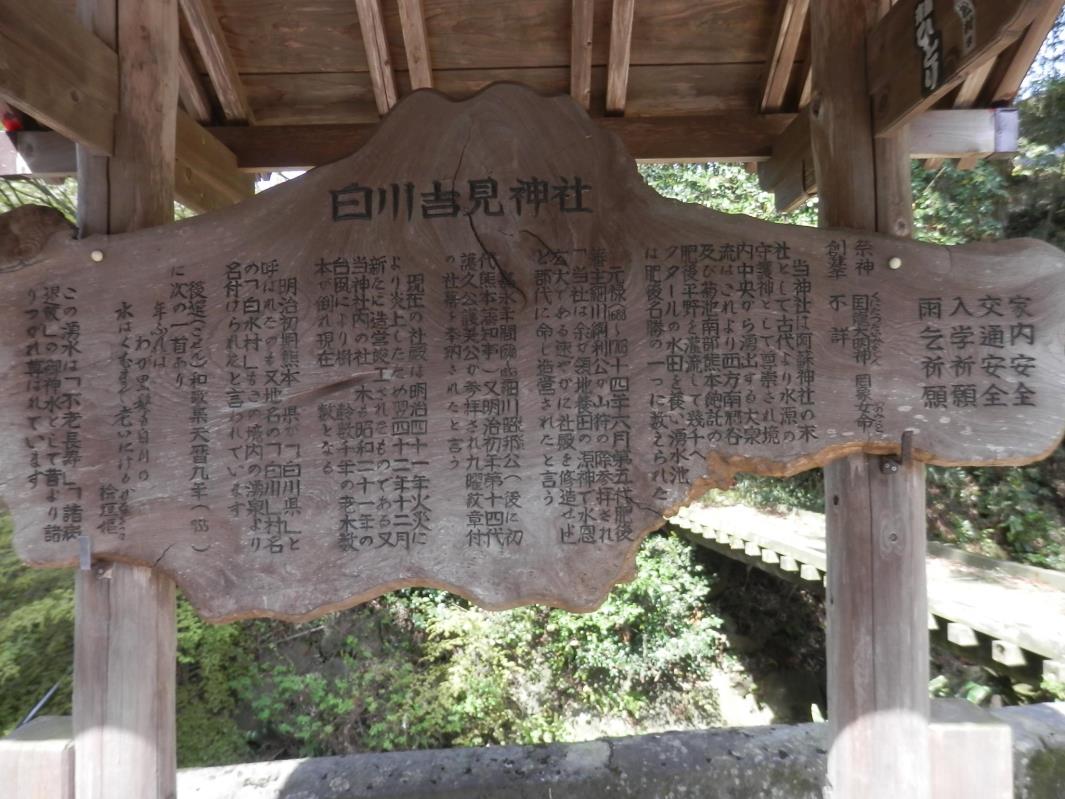 白川吉見神社
家内安全
交通安全
入学祈願
雨乞祈願
祭神 国龍大明神 国象女命
創建 不詳
当神社は阿蘇神社の末
社として古代より水源の
守護神として尊崇され境
内中央から湧出する大泉
流はこれより西方南郷谷
及び菊池南部熊本飽託の
肥後平野を灌流して幾千ヘ
クタールの水田を養い湧水池
は肥後名勝の一つに数えられた
元禄 十四年六月第五代肥後
藩主細川綱利公が山狩の際参拝され
「当社は余の領地養田の源神で水恩
宏大である速やかに社殿を修造せよ」
と郡代に命じ造営されたと言う
嘉永年間 細川韶邦公(後に初
代熊本藩知事)又明治初年第十四代
護久公護美公が参拝され九曜紋章付
の社幕を奉納されたと言う
現在の社殿は明治四十一年火災に
より炎上したため翌四十二年十二月
新たに造営竣工されたものである又
当神社内の社 木も昭和二十一年の
台風により樹 齢数千年の老木数
本が倒れ現在 数となる
明治初期熊本 県が「白川県」と
呼ばれたのも又地名の「白川」村名
の「白水村」もこの境内の湧泉より
名付けられたと言われています
後選 和歌集大暦九年(955)
に次の一首あり
年ふれば
わが黒髪も白川の
水はくむまで老いにけるかな
桧垣嫗
この湧水は「不老長寿」「諸病
退散」の御神水として昔より語
りつがれ尊ばれています